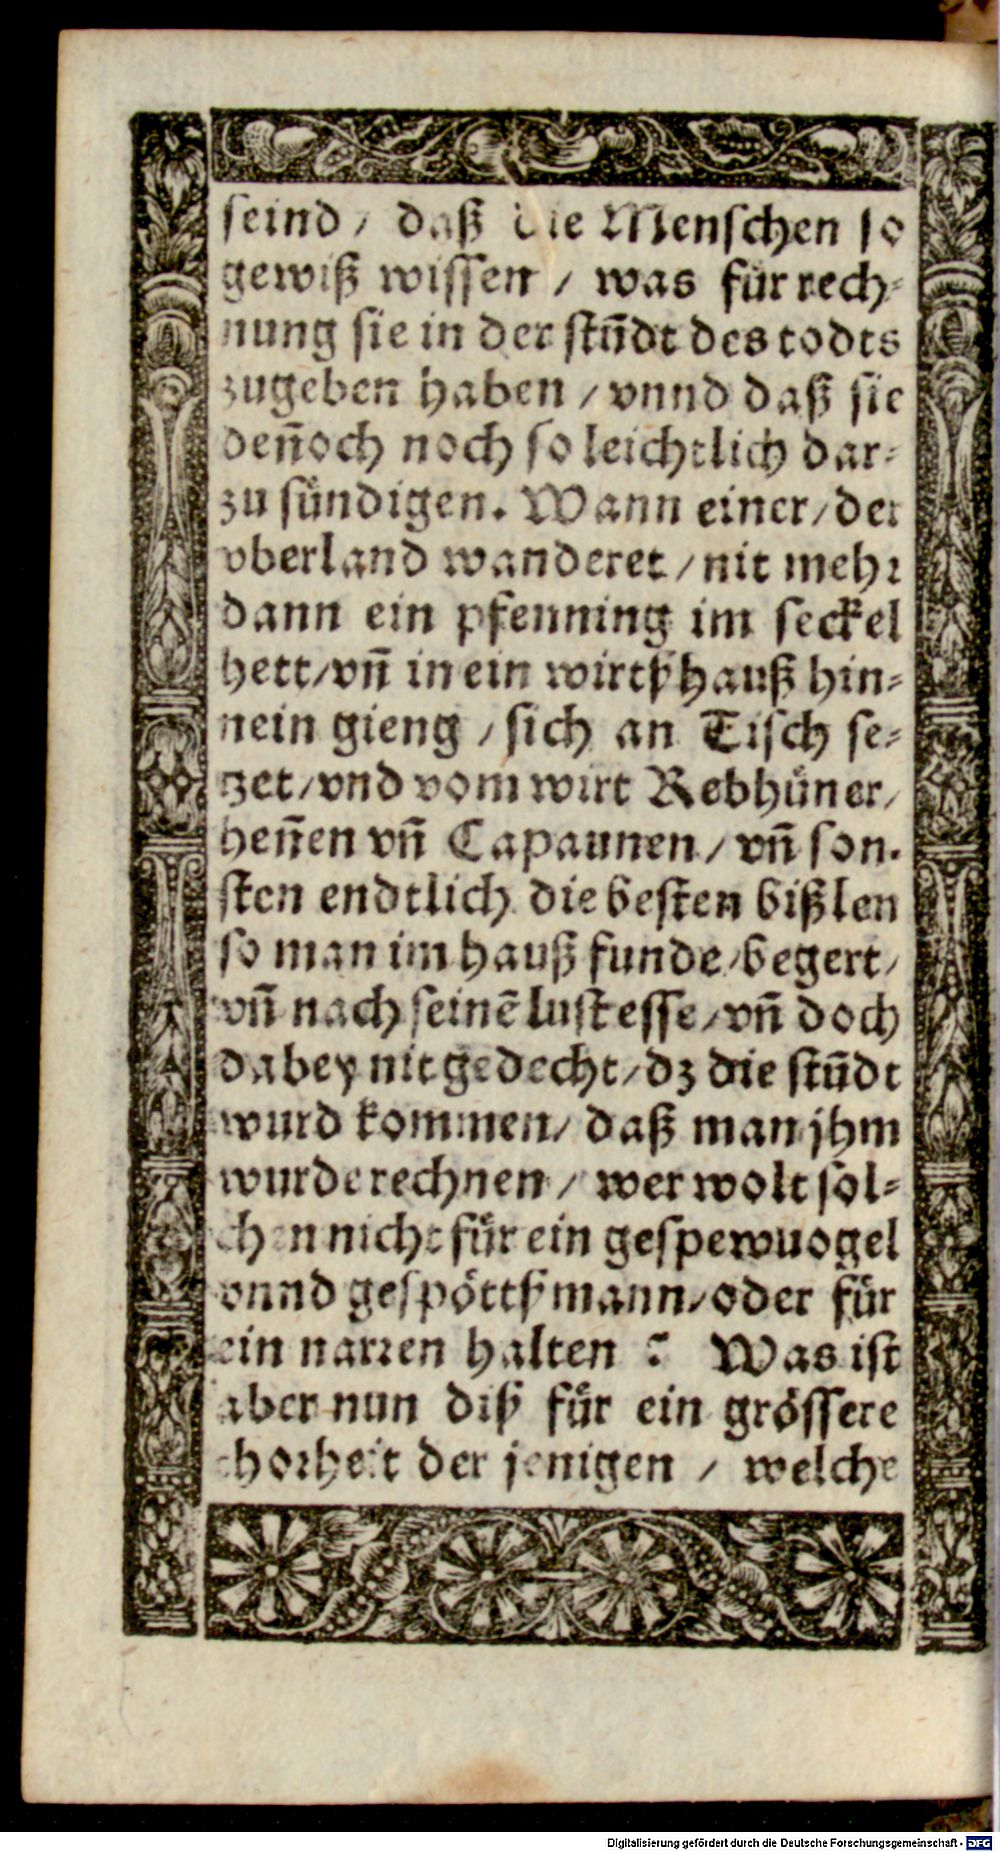 seind / daß die Menschen so
gewiß wissen / was für rech-
nung sie in der stūdt des todts
zugeben haben / vnnd daß sie
deñoch noch so leichtlich dar-
zu sündigen. Wann einer / der
vberland wanderet / nit mehr
dann ein pfenning im seckel
hett / vñ in ein wirtßhauß hin-
nein gieng / sich an Tisch se-
tzet / vnd vom wirt Rebhüner /
heñen vñ Capaunen / vñ son-
sten endtlich die besten bißlen
so man im hauß funde / begert /
vñ nach seinē lust esse / vñ doch
dabey nit gedecht / dz die stūdt
wurd kommen / daß man jhm
wurde rechnen / wer wolt sol-
chen nicht für ein gespewuogel
vnnd gespöttßmann / oder für
ein narren halten ? Was ist
aber nun diß für ein grössere
thorheit der jenigen / welche
Digitalisierung gefördert durch die Deutsche Forschungsgemeinschaft - DFG